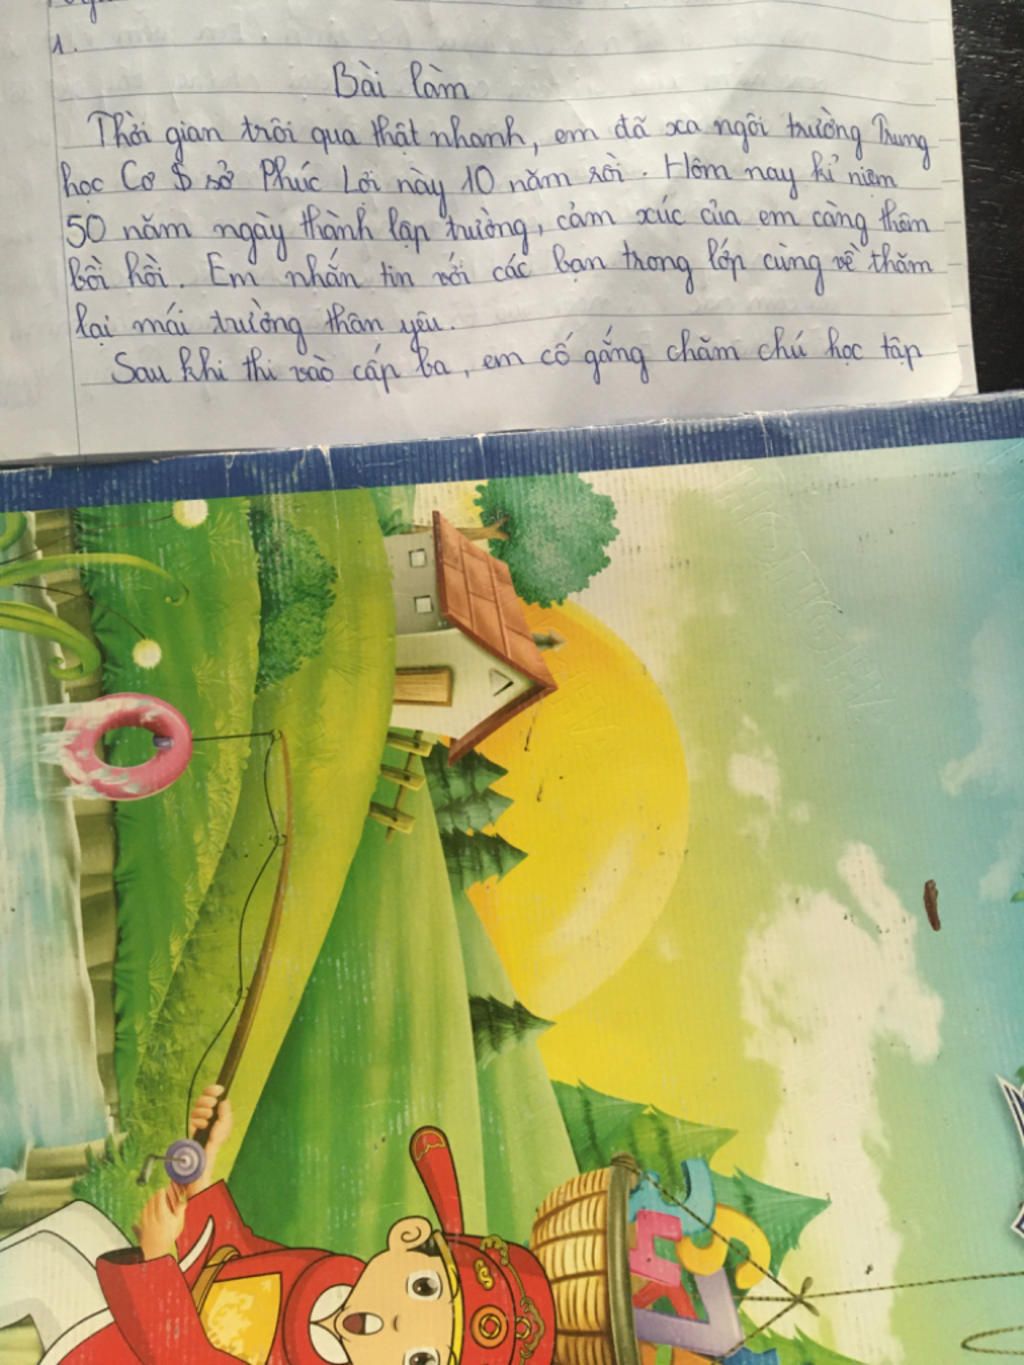 1.
Bài làm
Thời gian trôi qua thật nhanh, em đã xa ngôi trường Trung
học Cơ sở Phúc Lợi này 10 năm rồi. Hôm nay kỉ niệm
50 năm ngày thành lập trường, cảm xúc của em càng thêm
bồi hồi. Em nhắn tin với các bạn trong lớp cùng về thăm
lại mái trường thân yêu.
Sau khi thi vào cấp ba, em cố gắng chăm chú học tập